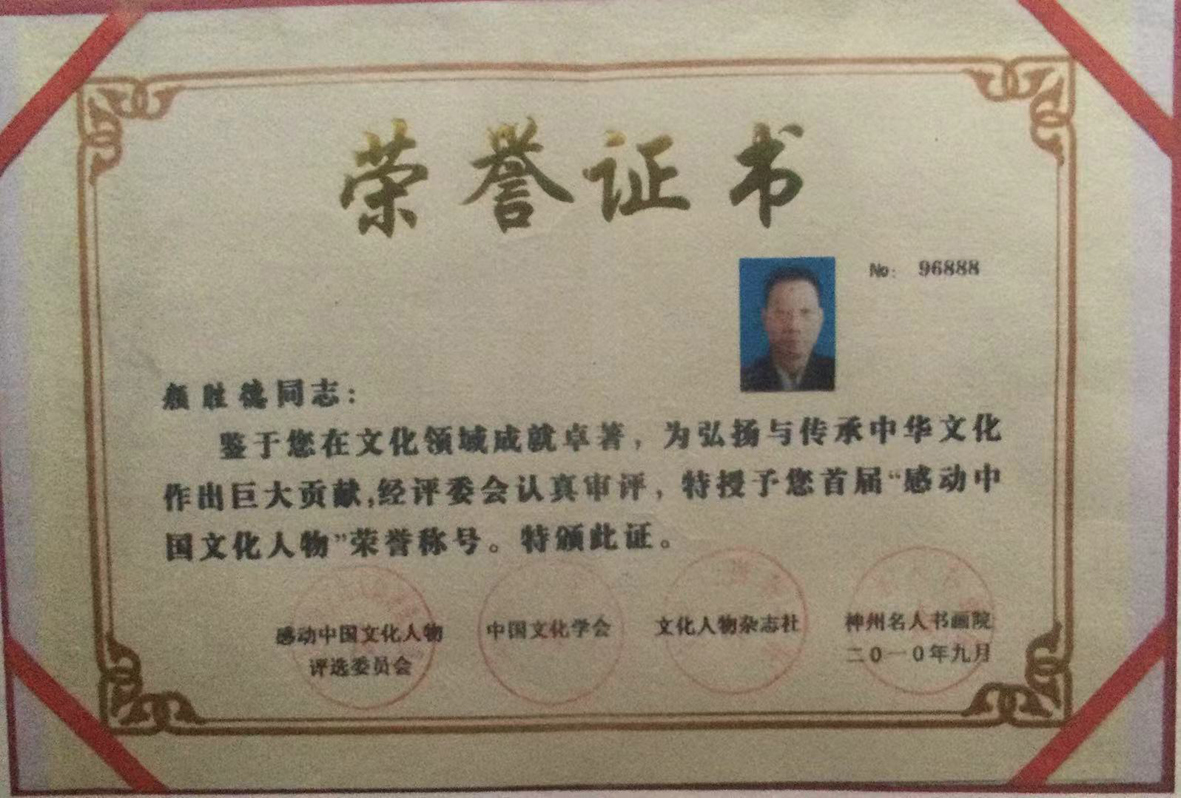 荣誉证书
No: 96888
颜胜德同志：
鉴于您在文化领域成就卓著，为弘扬与传承中华文化
作出巨大贡献,经评委会认真审评，特授予您首届“感动中
国文化人物”荣誉称号。特颁此证。
感动中国文化人物
评选委员会
中国文化学会
文化人物杂志社
神州名人书画院
二0一0年九月